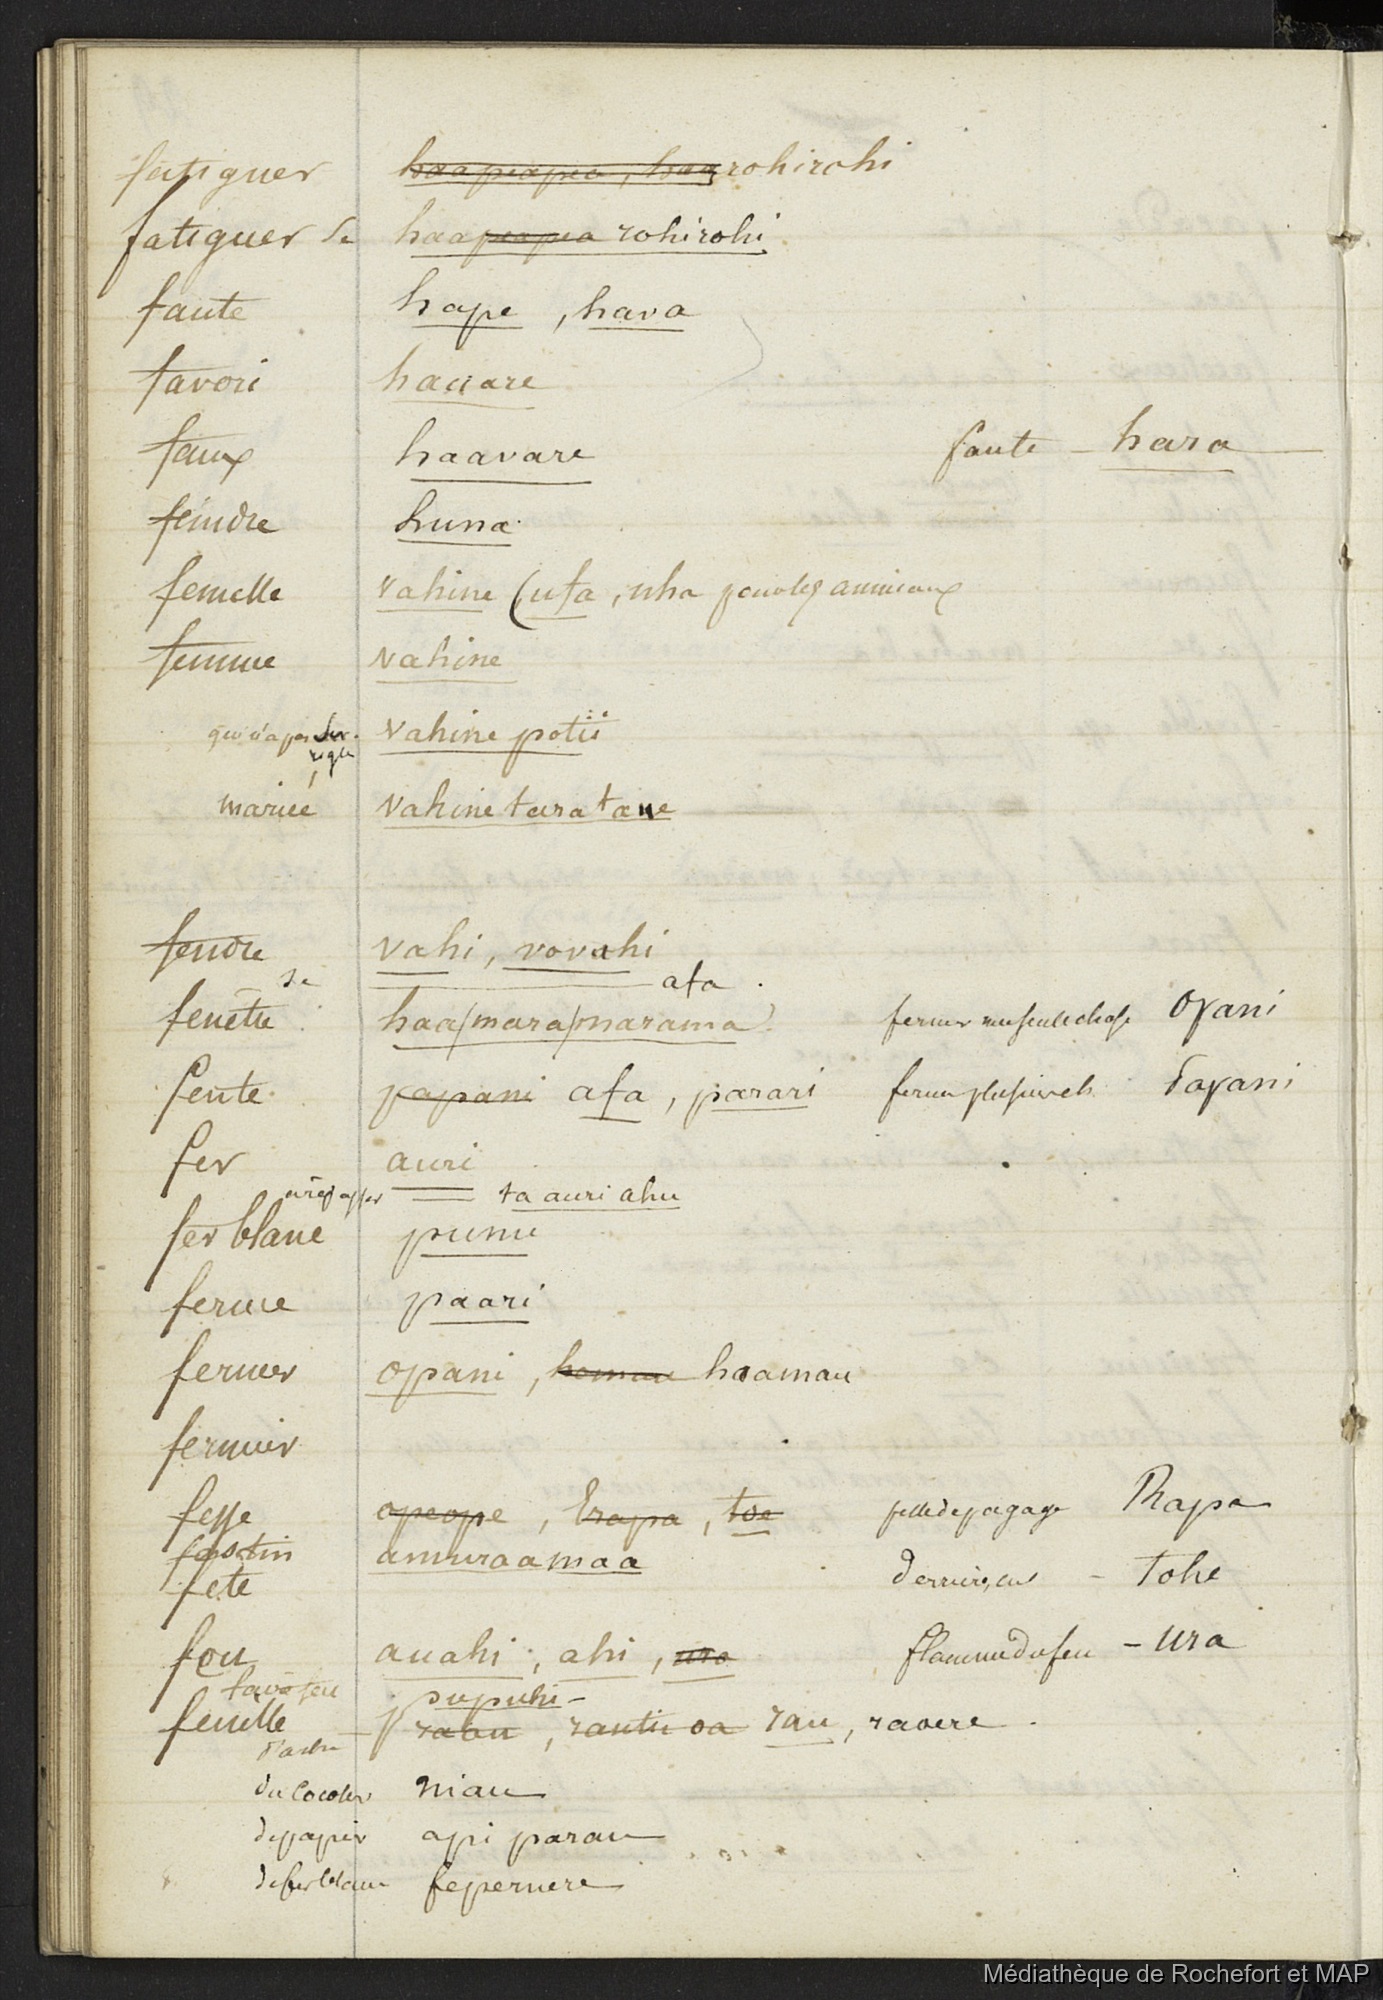 fatiguer haapeapea, haa rohirohi
fatiguer se haapeapea rohirohi
faute hape, hava
favori haavare
faux haavare faute - hara
feindre huna
femelle vahine (ufa, uha pour les animaux
femme vahine
qui n'a pas ses règles vahine potii
mariée vahine taratane
fendre vahi, vovahi
se afa
fenêtre haa/mara/marama fermer une seule chose Opani
fente papani afa, parari fermer plusieurs Tapani
fer auri
à repasser ta auri ahu
fer blanc punu
ferme paari
fermer opani, haamau
fermoir
fesse opeope, Erapa, toe pelle de pagaye Rapa
festin amuraamaa derrière, cu - Tohe
fete
feu auahi, ahi, ura flamme du feu - Ura
pupuhi -
feuille raau, rautii oa rau, raoere
d'arbre
du Cocotier niau
de papier api parau
de fer blanc fepernere
Médiathèque de Rochefort et MAP